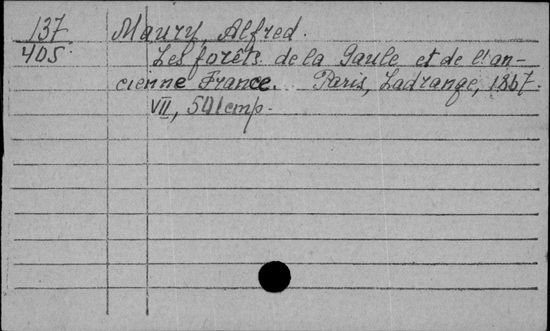 137 Maury, Alfred.
405. Les forêts de la Gaule et de l'an-
cienne France. Paris, Ladrange, 1867.
VII, 501 cmp.